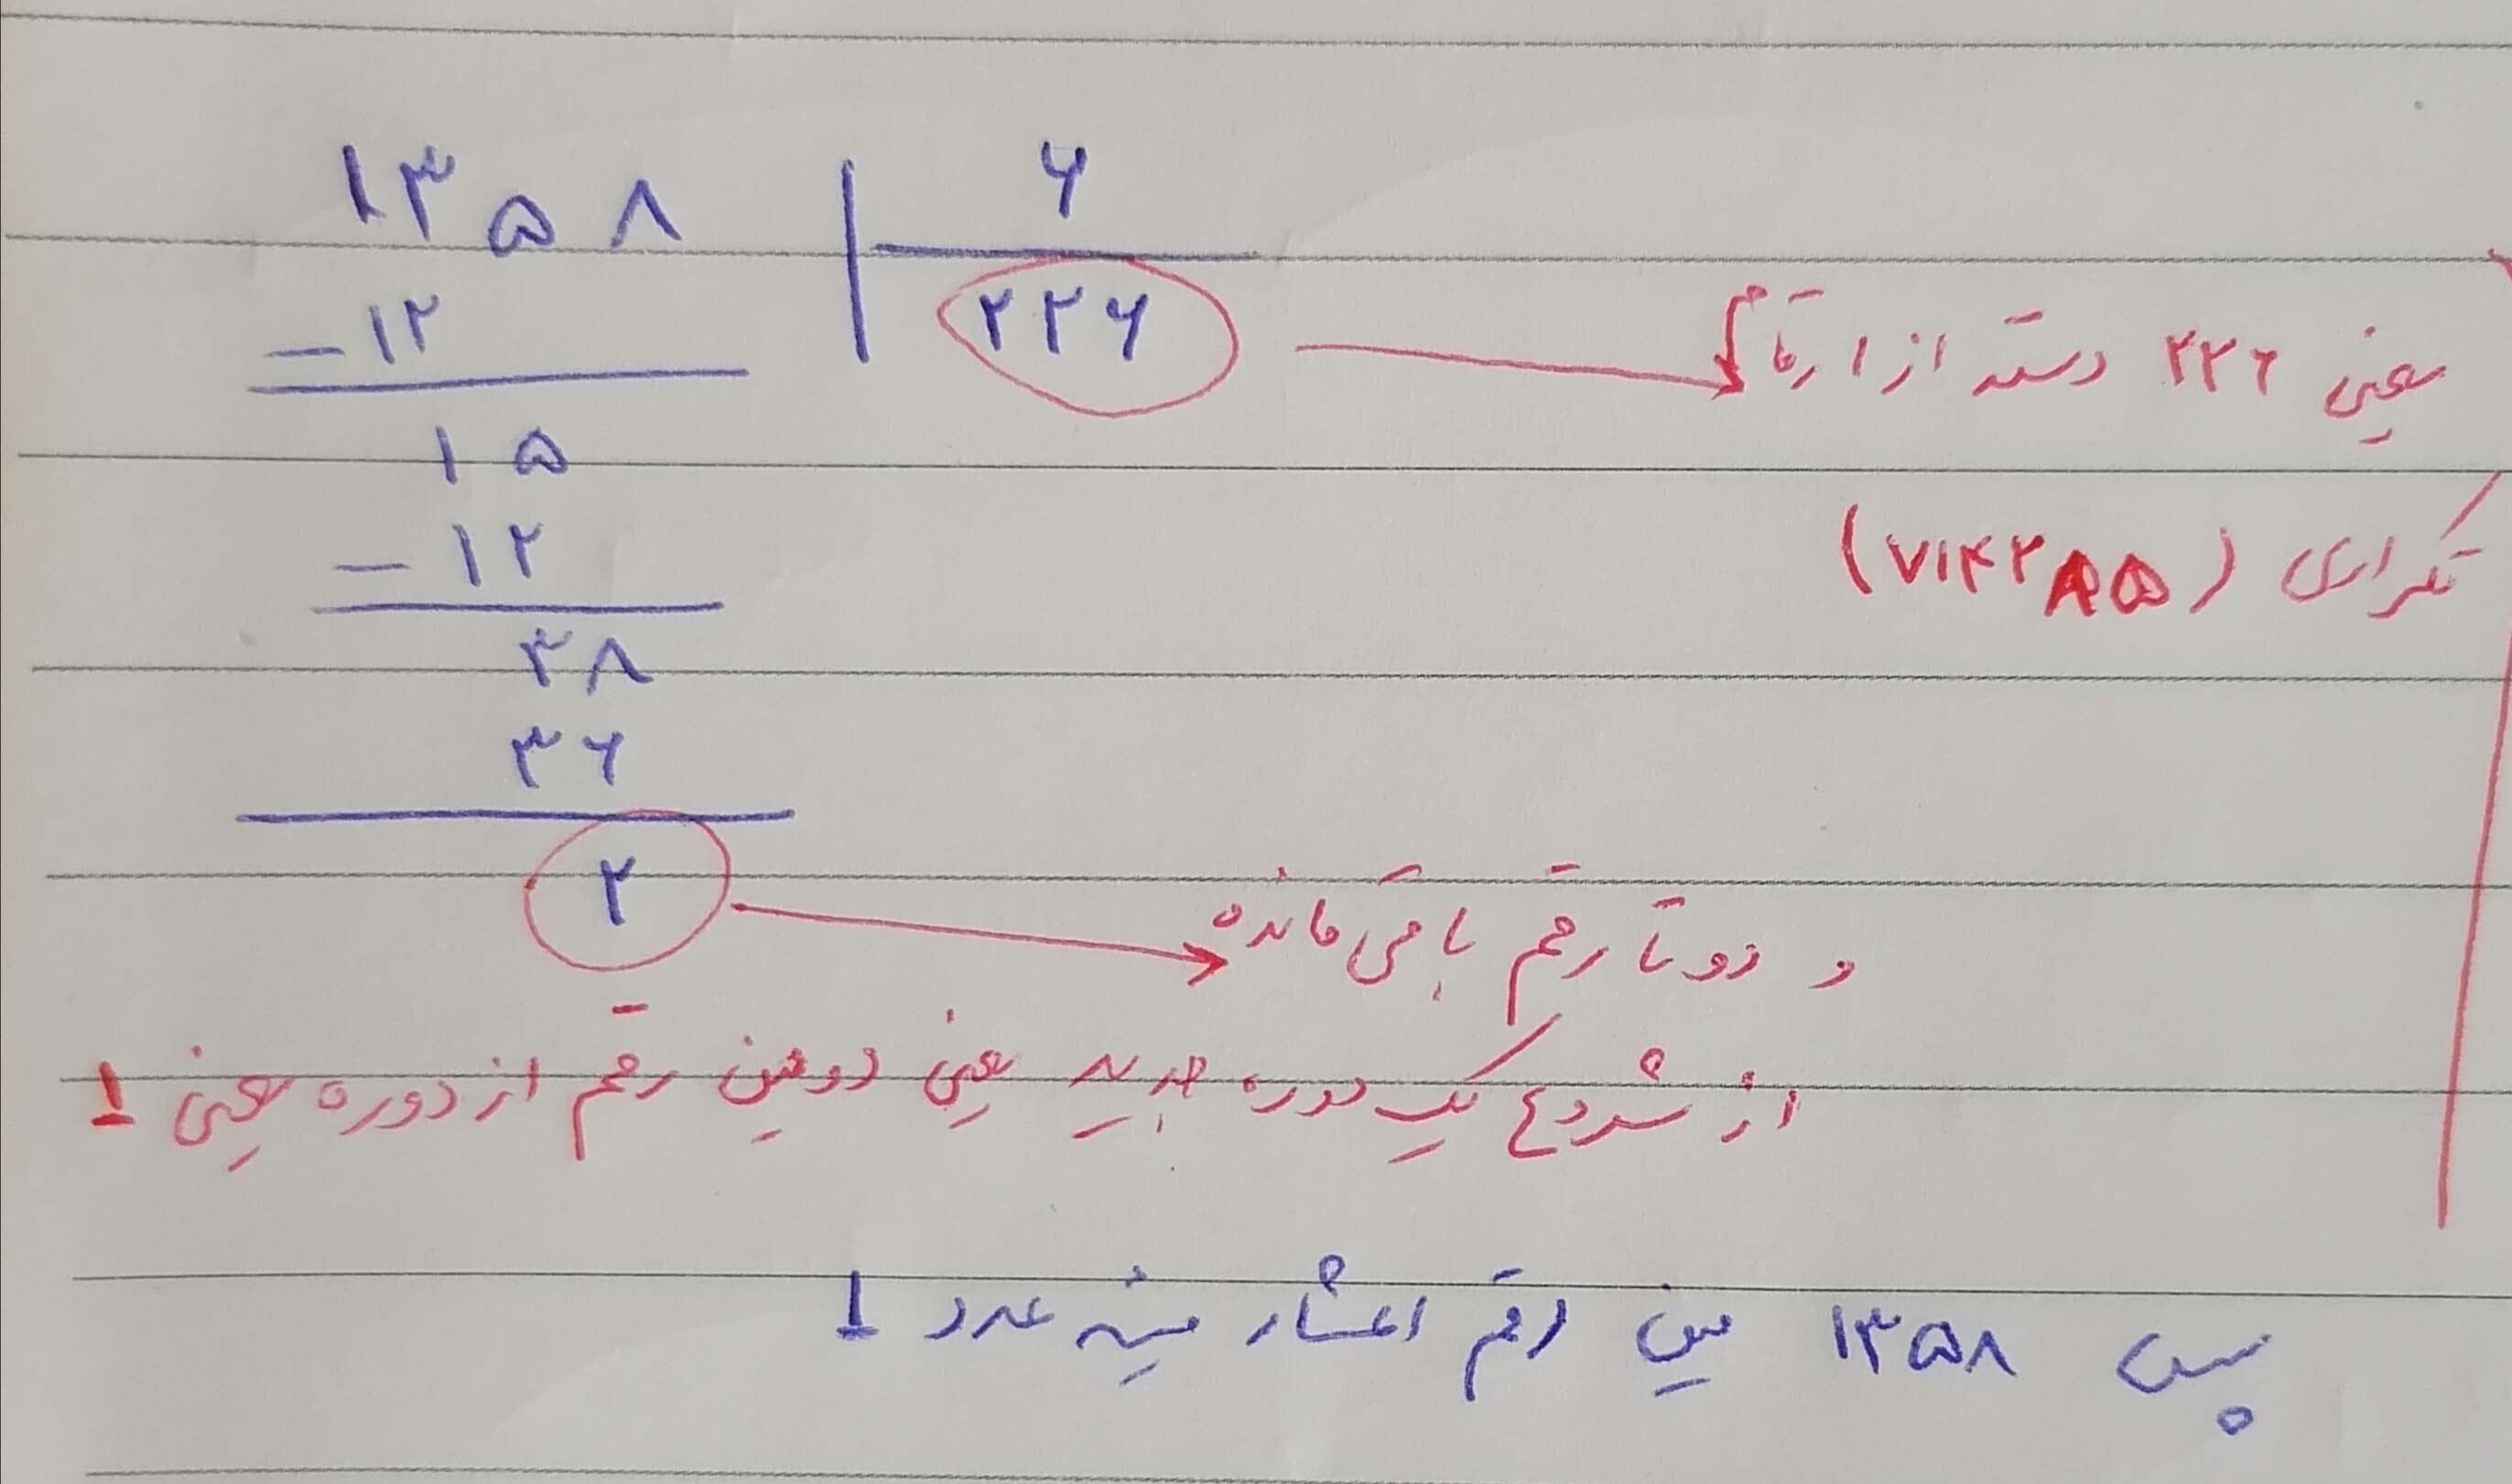 ۱۳۵۸ | ۶
۲۲۶
−۱۲
یعنی ۲۲۶ دسته از ارقام
۱۵
−۱۲
تکراری (۷۱۴۲۸۵)
۳۸
۳۶
۲
و دو تا رقم باقی مانده
از شروع یک دوره جدید یعنی دومین رقم از دوره یعنی ۱
پس ۱۳۵۸ مین رقم اعشار میشه عدد ۱